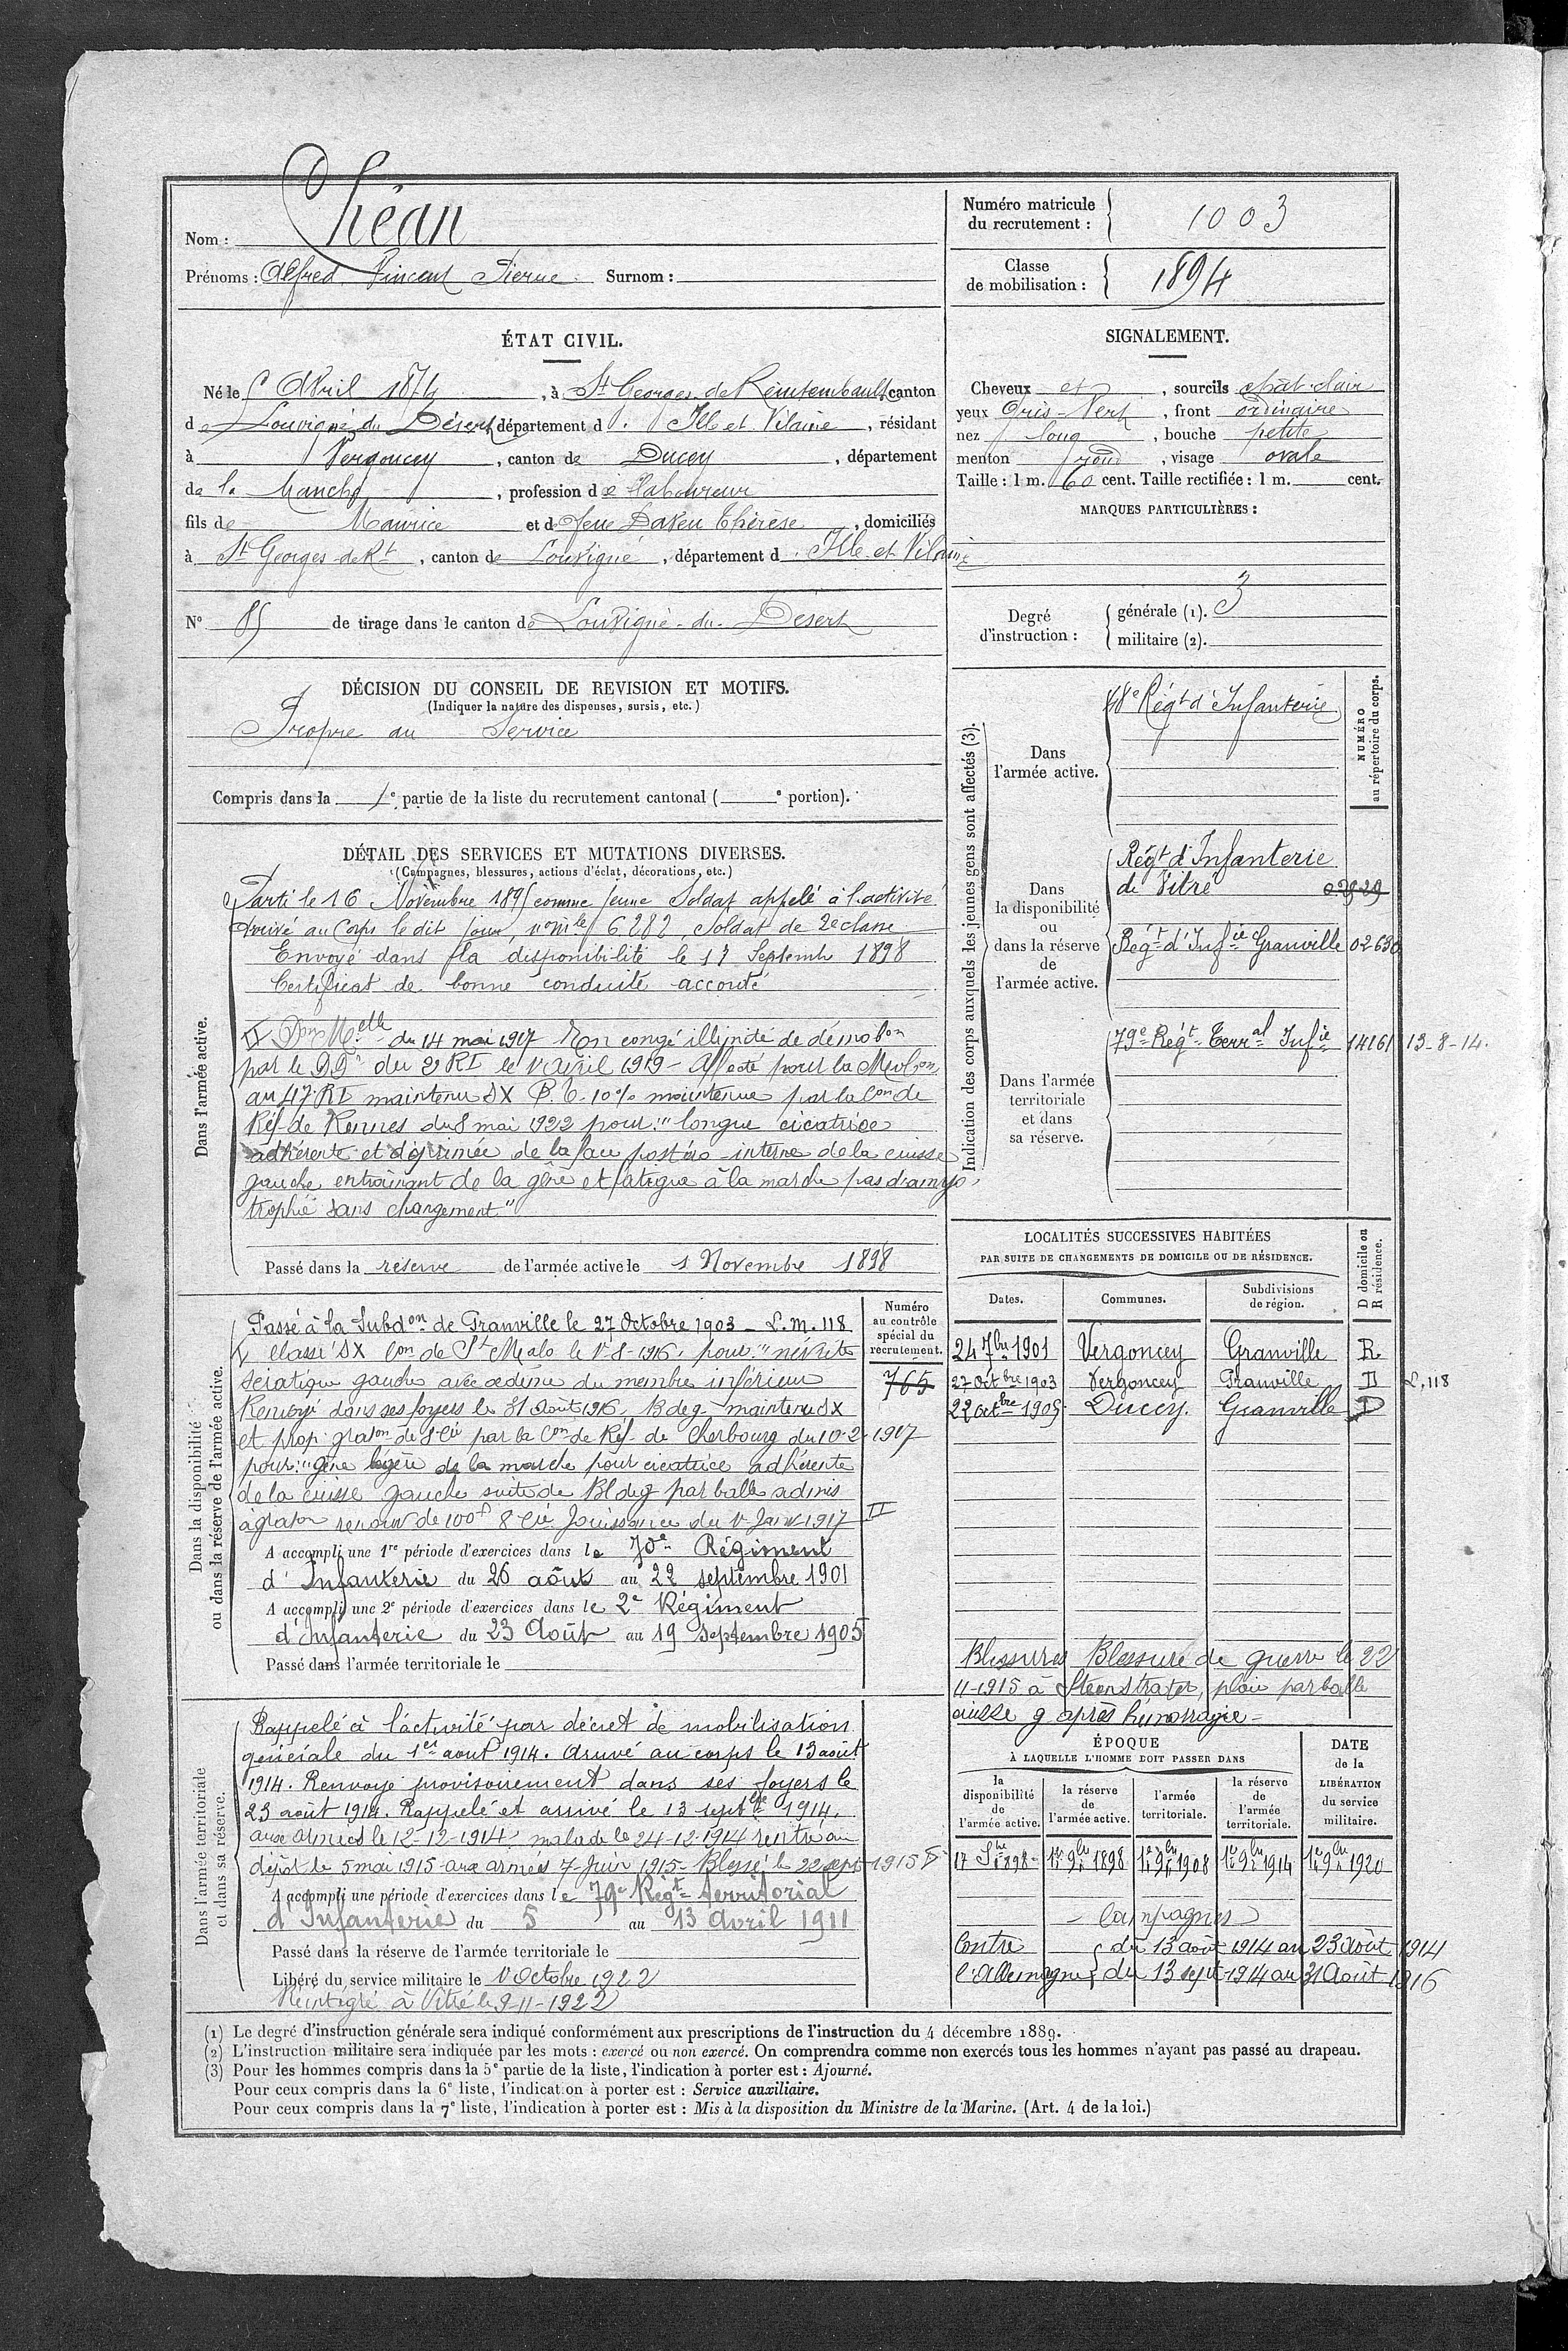 Nom : Théan
Prénoms : Alfred Vincent Pierre Surnom :
Numéro matricule
du recrutement : 1003
Classe
de mobilisation : 1894
ÉTAT CIVIL.
Né le 5 Avril 1874, à St Georges de Reintembault canton
de Louvigné du Désert département d'Ille et Vilaine, résidant
à Vergoncey, canton de Ducey, département
de la Manche, profession de laboureur
fils de Maurice et de feue Daven Thérèse, domiciliés
à St Georges de Rt, canton de Louvigné, département d'Ille et Vilaine
N° 85 de tirage dans le canton de Louvigné-du-Désert
SIGNALEMENT.
Cheveux et, sourcils chât-clair
yeux Gris-Vert, front ordinaire
nez long, bouche petite
menton rond, visage ovale
Taille : 1 m. 60 cent. Taille rectifiée : 1 m. cent.
MARQUES PARTICULIÈRES :
Degré
d'instruction :
générale (1). 3
militaire (2).
DÉCISION DU CONSEIL DE REVISION ET MOTIFS.
(Indiquer la nature des dispenses, sursis, etc.)
Propre au Service
Compris dans la 1e partie de la liste du recrutement cantonal ( e portion).
DÉTAIL DES SERVICES ET MUTATIONS DIVERSES.
(Campagnes, blessures, actions d'éclat, décorations, etc.)
Dans l'armée active.
Parti le 16 Novembre 1895 comme jeune Soldat appelé à l'activité
Arrivé au Corps le dit jour, n° mle 6282, Soldat de 2e classe
Envoyé dans la disponibilité le 17 Septemb 1898
Certificat de bonne conduite accordé
II Don Melle du 14 mai 1917 En congé illimité de démobon
par le DD du 2e RI le 1r avril 1919 - Affecté pour la Mobon
au 47 RI maintenu SX P. T. 10% maintenue par la Con de
Réf. de Rennes du 8 mai 1922 pour : "longue cicatrice
adhérente et déprimée de la face postéro-interne de la cuisse
gauche entraînant de la gêne et fatigue à la marche pas d'amyo-
trophie sans changement"
Passé dans la réserve de l'armée active le 1 Novembre 1898
Indication des corps auxquels les jeunes gens sont affectés (3).
NUMÉRO
au répertoire du corps.
Dans
l'armée active.
48e Régt d'Infanterie
Dans
la disponibilité
ou
dans la réserve
de
l'armée active.
Régt d'Infanterie
de Vitré
Régt d'Infie Granville 02630
Dans l'armée
territoriale
et dans
sa réserve.
79e Régt Terral Infie 14161 13-8-14.
LOCALITÉS SUCCESSIVES HABITÉES
PAR SUITE DE CHANGEMENTS DE DOMICILE OU DE RÉSIDENCE.
Dates. Communes. Subdivisions de région. D domicile ou R résidence.
24 7bre 1901 Vergoncey Granville R
27 Octbre 1903 Vergoncey Granville D L, 118
22 octbre 1905 Ducey. Granville D
Dans la disponibilité
ou dans la réserve de l'armée active.
Numéro
au contrôle
spécial du
recrutement.
765
Passé à la Subdon de Granville le 27 Octobre 1903 - L.m. 118
V Classé SX Con de St Malo le 1r-8-1916. pour "névrite
sciatique gauche avec oedème du membre inférieur
Renvoyé dans ses foyers le 31 Août 1916. B deg. maintenu SX
et prop. graton de 8e Cie par la Con de Réf. de Cherbourg du 10-2-1917
pour : "gêne légère de la marche pour cicatrice adhérente
de la cuisse gauche suite de Bl de g par balle admis
à graton renouv de 100f 8e Cie Jouissance du 1r Janv 1917 II
A accompli une 1re période d'exercices dans le 70e Régiment
d'Infanterie du 26 août au 22 septembre 1901
A accompli une 2e période d'exercices dans le 2e Régiment
d'Infanterie du 23 Août au 19 Septembre 1905
Passé dans l'armée territoriale le
Blessures Blessure de guerre le 22
11-1915 à Steenstrater, plaie par balle
cuisse g après hémorragie =
Dans l'armée territoriale
et dans sa réserve.
Rappelé à l'activité par décret de mobilisation
générale du 1er août 1914. Arrivé au corps le 13 août
1914. Renvoyé provisoirement dans ses foyers le
23 août 1914. Rappelé et arrivé le 13 septbre 1914.
aux armées le 12-12-1914. malade le 24-12-1914 rentré au
dépôt le 5 mai 1915 - aux armées 7 Juin 1915 - Blessé le 22 sept 1915 V
A accompli une période d'exercices dans le 79e Régt territorial
d'Infanterie du 5 au 13 Avril 1911
Passé dans la réserve de l'armée territoriale le
Libéré du service militaire le 1r Octobre 1922
Réintégré à Vitré le 9-11-1922
ÉPOQUE
À LAQUELLE L'HOMME DOIT PASSER DANS
la disponibilité de l'armée active. la réserve de l'armée active. l'armée territoriale. la réserve de l'armée territoriale. DATE de la LIBÉRATION du service militaire.
17 Sbre 1898 - 1er 9bre 1898 1er 9bre 1908 1er 9bre 1914 1er 9bre 1920
- Campagnes
Contre { du 13 août 1914 au 23 août 1914
l'Allemagne { du 13 sept 1914 au 31 Août 1916
(1) Le degré d'instruction générale sera indiqué conformément aux prescriptions de l'instruction du 4 décembre 1889.
(2) L'instruction militaire sera indiquée par les mots : exercé ou non exercé. On comprendra comme non exercés tous les hommes n'ayant pas passé au drapeau.
(3) Pour les hommes compris dans la 5e partie de la liste, l'indication à porter est : Ajourné.
Pour ceux compris dans la 6e liste, l'indication à porter est : Service auxiliaire.
Pour ceux compris dans la 7e liste, l'indication à porter est : Mis à la disposition du Ministre de la Marine. (Art. 4 de la loi.)